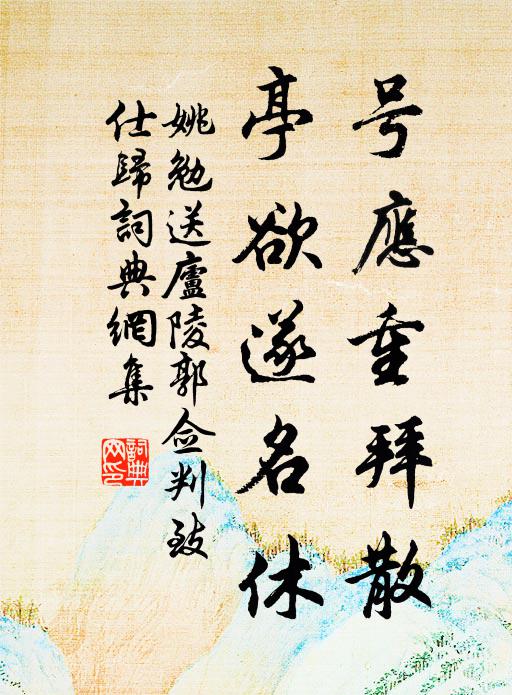 号應重拜散
亭欲遂名休
姚勉送廬陵郭佥判致
仕歸詞典網集
詞典网印